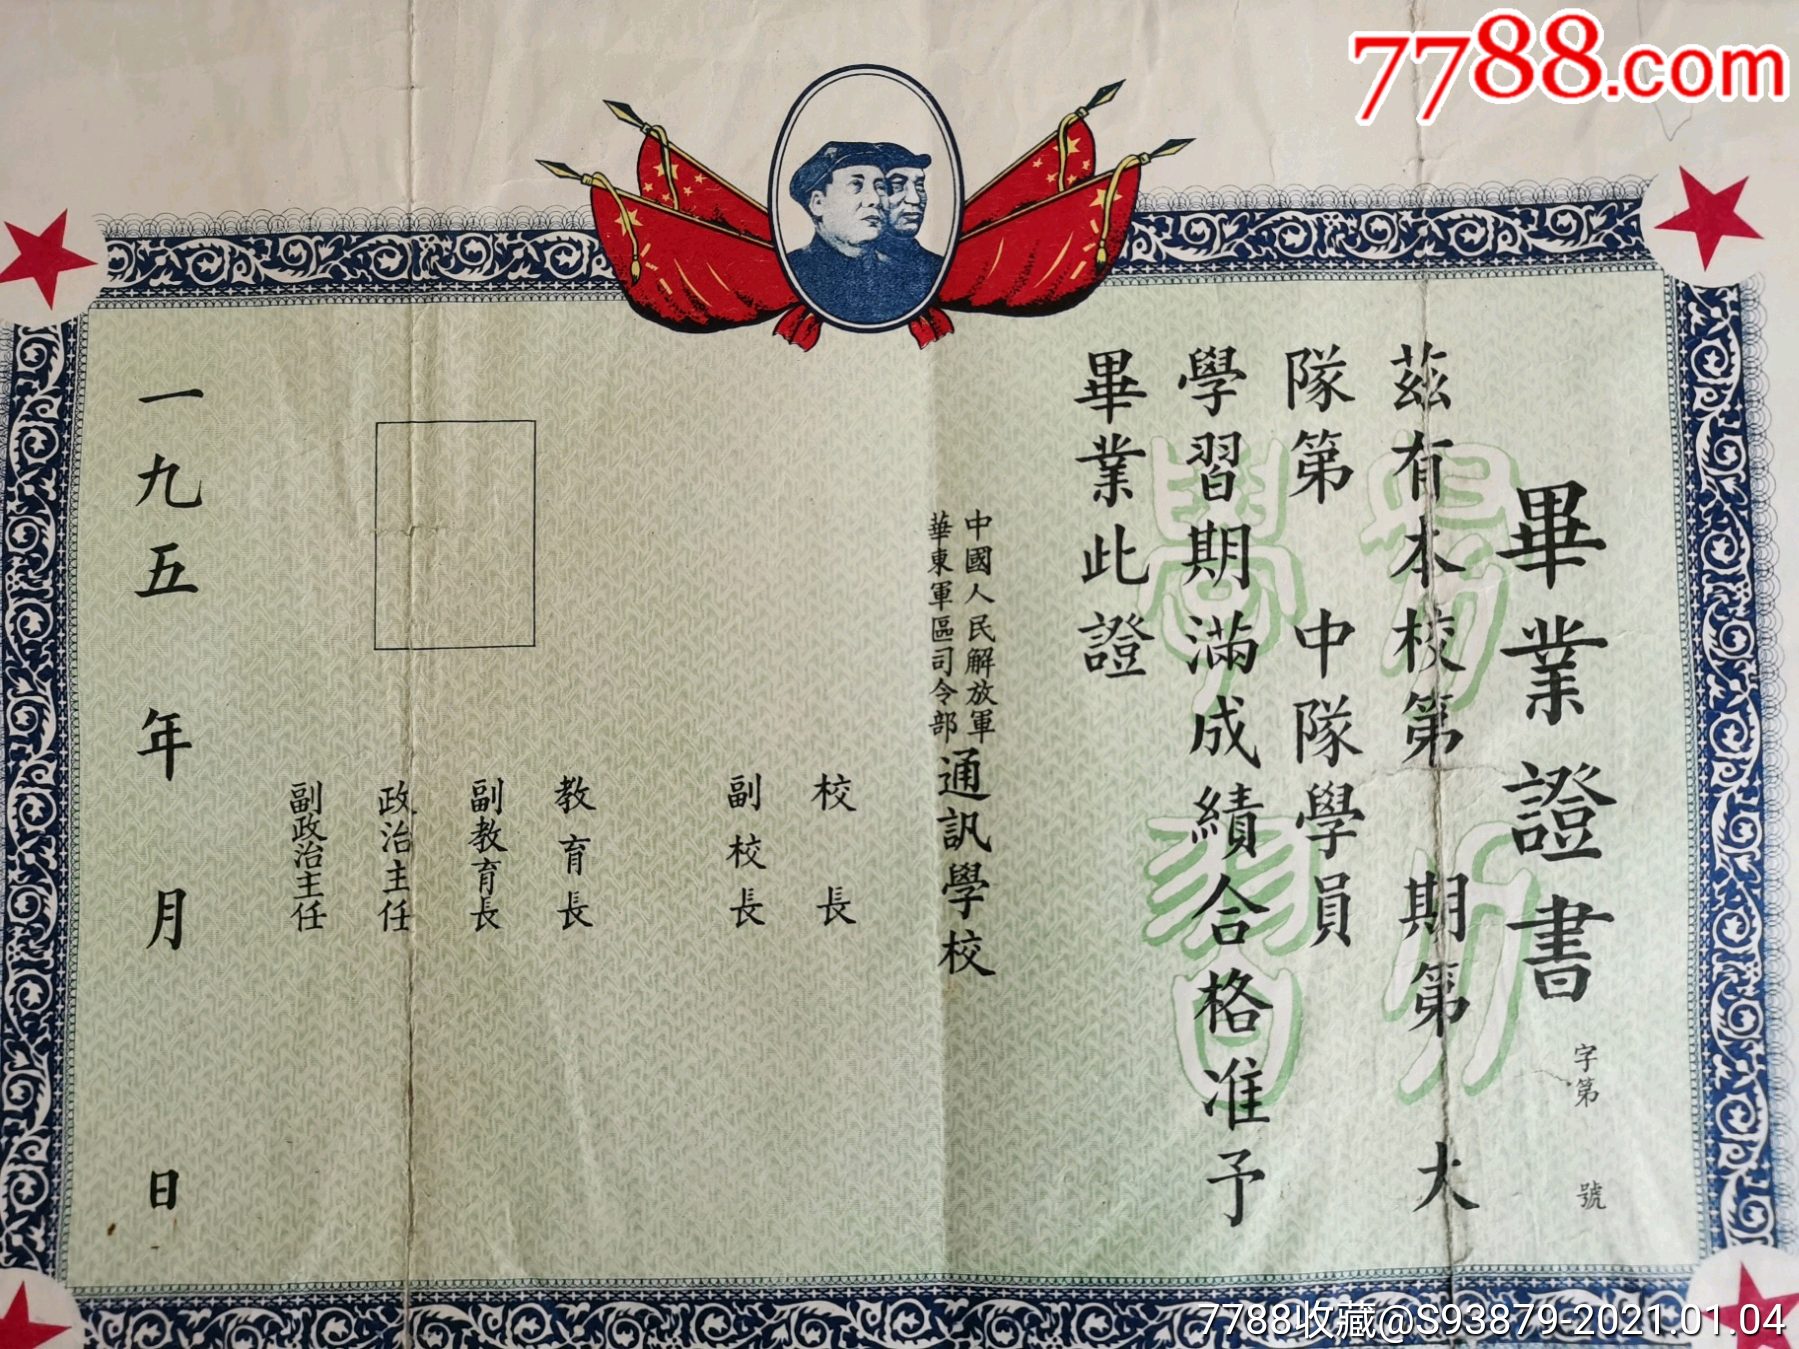 7788.com
畢業證書
字第 號
茲有本校第 期第 大
隊第 中隊學員
學習期滿成績合格准予
畢業此證
中國人民解放軍
華東軍區司令部
通訊學校
校長
副校長
教育長
副教育長
政治主任
副政治主任
一九五 年 月 日
學習
7788收藏@S93879-2021.01.04